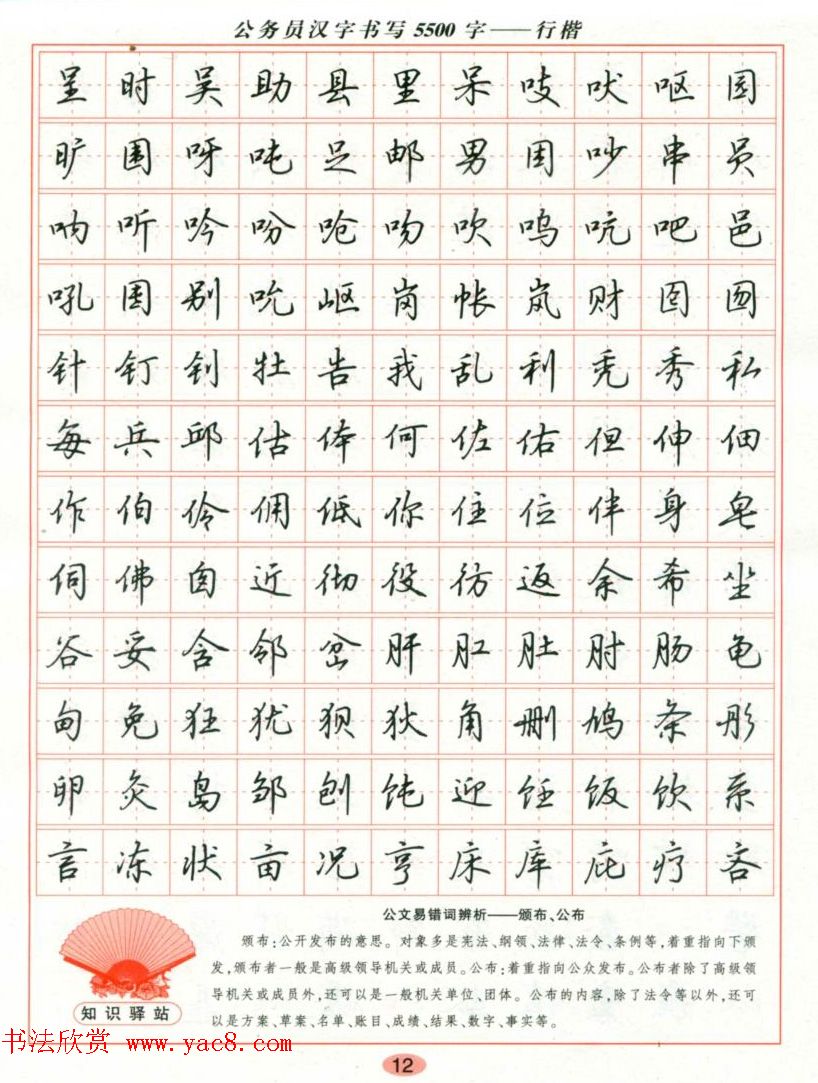 公务员汉字书写5500字——行楷
呈时吴助县里呆吱吠呕园
旷围呀吨足邮男困吵串员
呐听吟吩呛吻吹呜吭吧邑
吼囤别吮岖岗帐岚财图囫
针钉钊牡告我乱利秃秀私
每兵邱估体何佐佑但伸佃
作伯伶佣低你住位伴身皂
伺佛囱近彻役彷返余希坐
谷妥含邻岔肝肛肚肘肠龟
甸免狂犹狈狄角删鸠条彤
卵灸岛邹刨饨迎饪饭饮系
言冻状亩况亨床库庇疗吝
公文易错词辨析——颁布、公布
颁布:公开发布的意思。对象多是宪法、纲领、法律、法令、条例等,着重指向下颁
发,颁布者一般是高级领导机关或成员。公布:着重指向公众发布。公布者除了高级领
导机关或成员外,还可以是一般机关单位、团体。公布的内容,除了法令等以外,还可
以是方案、草案、名单、账目、成绩、结果、数字、事实等。
知识驿站
书法欣赏 www.yac8.com
12